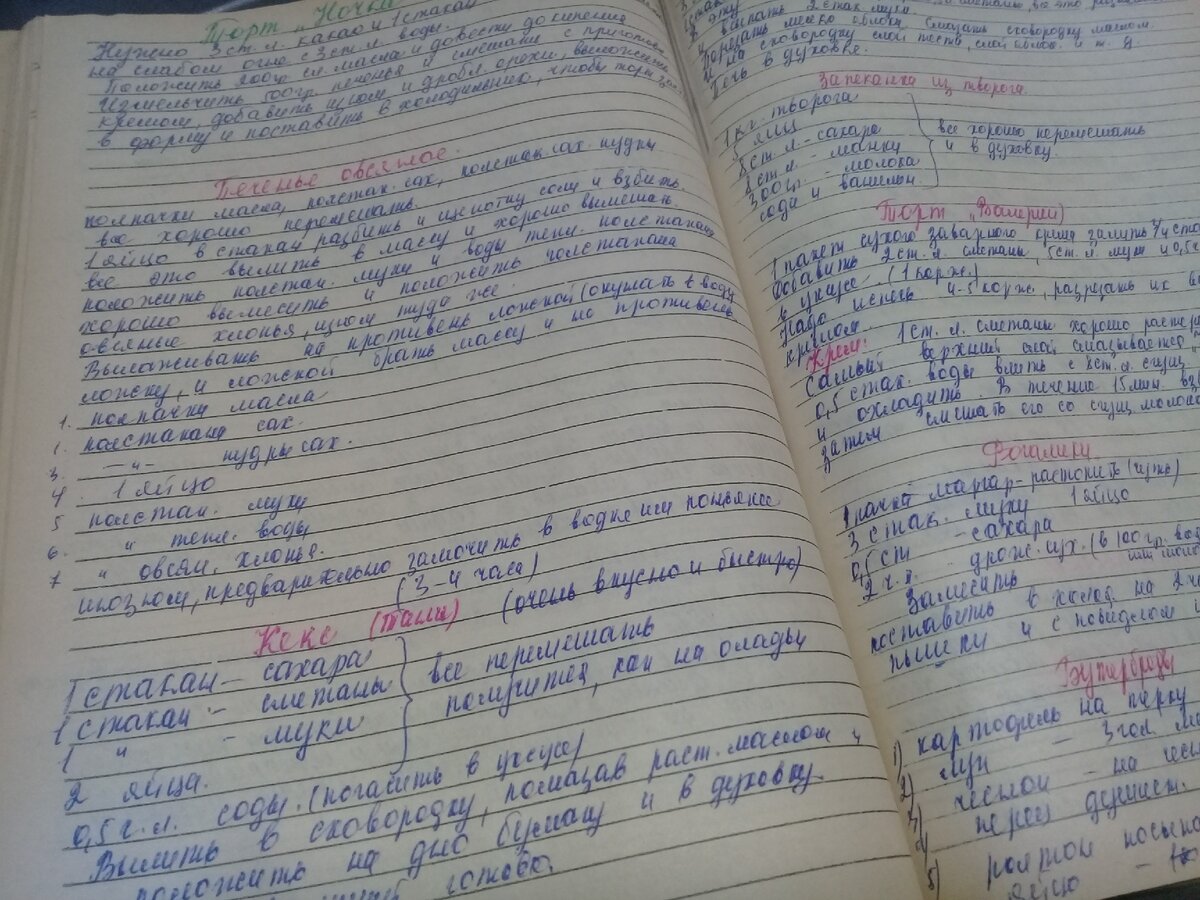 Торт „Ночка"
Нужно 3 ст. л. какао и 1 стакан
на слабом огне с 3 ст. л. воды.
Положить 200 гр сл. масла и довести до кипения
Измельчить 500 гр. печенья и смешать с приготовл
кремом, добавить изюм и дробл. орехи, выложить
в форму и поставить в холодильник, чтобы торт
Печенье овсяное.
полпачки масла, полстак. сах, полстак. сах. пудры
все хорошо перемешать.
1 яйцо в стакан разбить и щепотку соли и взбить.
все это вылить в массу и хорошо вымешать.
положить полстак. муки и воды тепл. полстакана
хорошо вымесить и положить полстакана
овсяные хлопья, изюм туда же.
Выкладывать на противень ложкой (окунать в воду
ложку, и ложкой брать массу и на противень
1. полпачки масла
2. полстакана сах.
3. –"– пудры сах.
4. 1 яйцо
5 полстак. муки
6. " тепл. воды
7 " овсян. хлопья.
изюм, предварительно замочить в водке или коньяке
(3-4 часа)
Кекс (Тани) (очень вкусно и быстро)
1 стакан – сахара
1 стакан – сметаны
1 " – муки
все перемешать
получится, как на оладьи
2 яйца.
0,5 ч. л. соды. (погасить в уксусе)
Вылить в сковородку, помазав раст. маслом и
положить на дно бумагу и в духовку.
готово.
всыпать 2 стак. муки
Порезать мелко яблоки. Смазать сковородку маслом.
и на сковородку слой теста, слой яблок и т. д
Печь в духовке.
Запеканка из творога.
1 кг. творога
5 яиц
8 ст. л. – сахара
8 ст. л. – манки
300 гр. – молока
сода и ванилин.
все хорошо перемешать
и в духовку.
Торт „Валерии"
1 пакет сухого заварного крема залить 3/4 ста
добавить 2 ст. л. сметаны, 5 ст. л. муки и 0,5
в уксусе. (1 корж.)
Надо испечь 4-5 корже, разрезать их
кремом.
Крем: 1 ст. л. сметаны хорошо растер
самый верхний слой смазывается
0,5 стак. воды влить с 8 ст. л. сгущ.
и охладить. В течение 15 мин. вз
затем смешать его со сгущ. молоко
Рогалики
1 пачка маргар – растопить (чуть)
3 стак. муки 1 яйцо
0,5 ст – сахара
2 ч. л. – дрож. сух. (в 100 гр. вод
или моло
Замесить
поставить в холод на 2 ча
пышки и с повидлом
Бутерброды
1) картофель на терку
2) лук – 3 гол.
3) чеснок – на чесн
4 перец душист.
5)
яйцо –